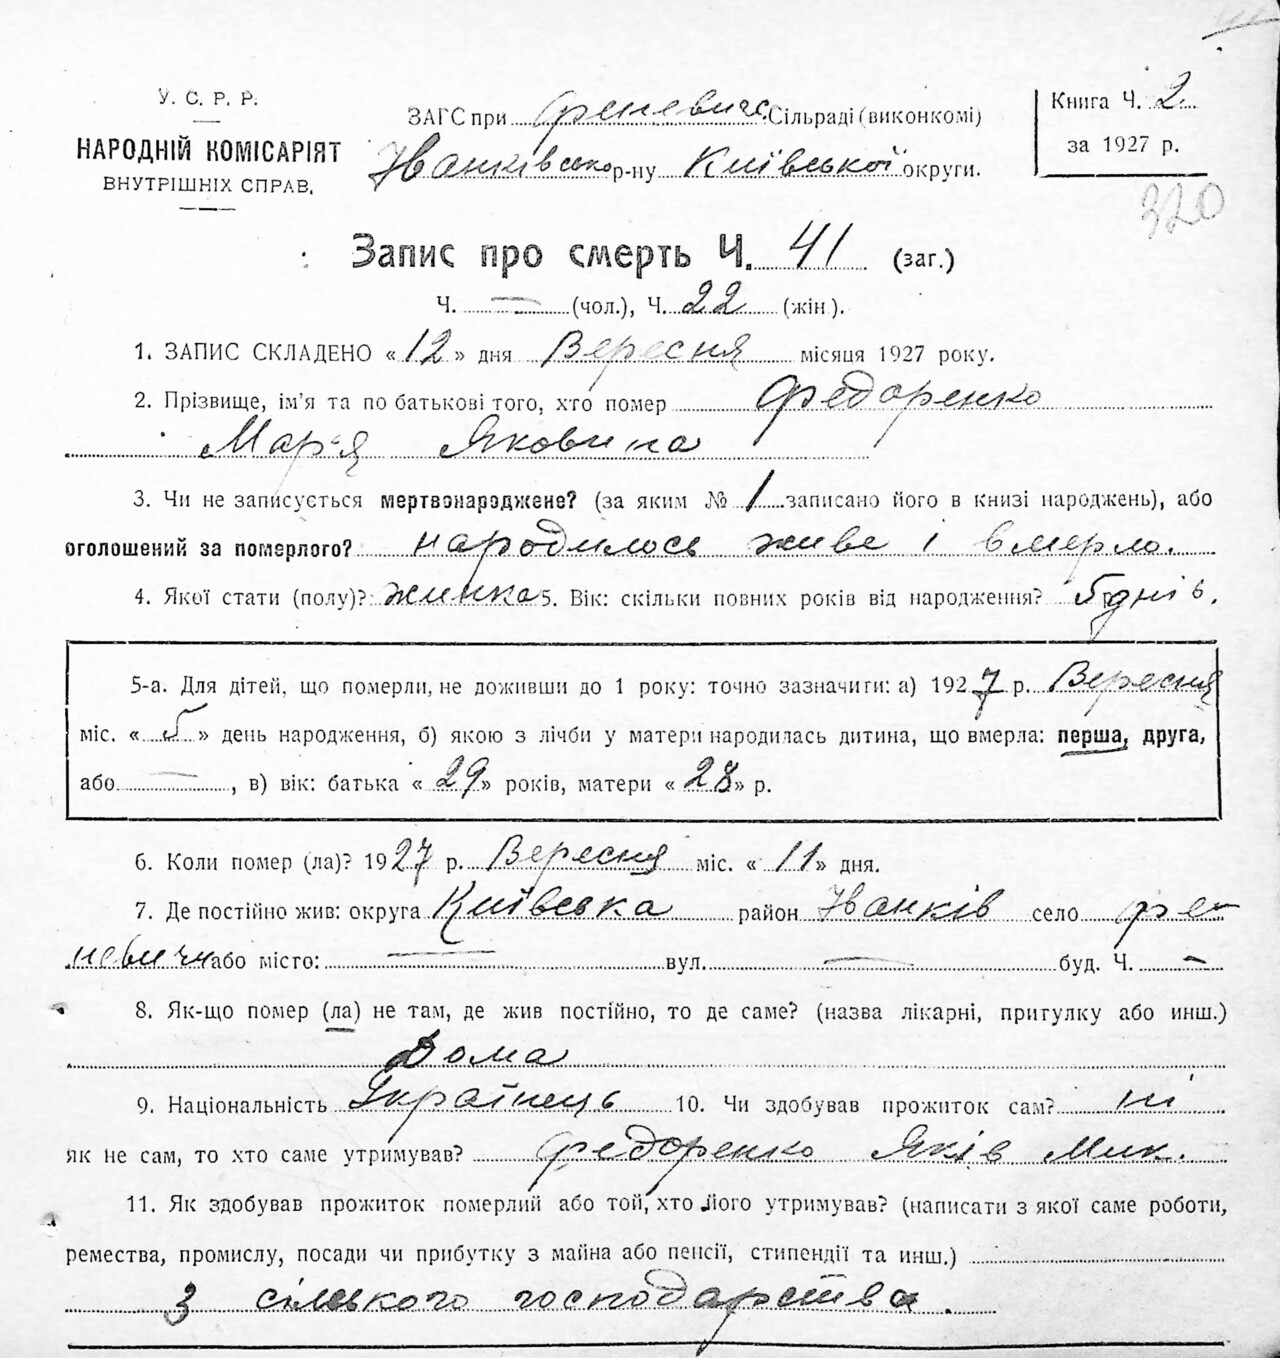 У. С. Р. Р.
НАРОДНІЙ КОМІСАРІЯТ
ВНУТРІШНІХ СПРАВ.
ЗАГС при Феневичс. Сільраді (виконкомі)
Іванківсько р-ну Київської округи.
Книга Ч. 2
за 1927 р.
320
Запис про смерть Ч. 41 (заг.)
Ч. — (чол.), Ч. 22 (жін).
1. ЗАПИС СКЛАДЕНО «12» дня Вересня місяця 1927 року.
2. Прізвище, ім'я та по батькові того, хто помер Федоренко
Мар'я Яковина
3. Чи не записується мертвонароджене? (за яким № 1 записано його в книзі народжень), або
оголошений за померлого? народилось живе і вмерло.
4. Якої стати (полу)? жинка 5. Вік: скільки повних років від народження? 5 днів.
5-а. Для дітей, що померли, не доживши до 1 року: точно зазначити: а) 1927 р. Вересня
міс. «5» день народження, б) якою з лічби у матери народилась дитина, що вмерла: перша, друга,
або —, в) вік: батька «29» років, матери «28» р.
6. Коли помер (ла)? 1927 р. Вересня міс. «11» дня.
7. Де постійно жив: округа Київська район Іванків село Фе-
невичи або місто: — вул. — буд. Ч. —
8. Як-що помер (ла) не там, де жив постійно, то де саме? (назва лікарні, пригулку або инш.)
Дома
9. Національність Українець 10. Чи здобував прожиток сам? ні
як не сам, то хто саме утримував? Федоренко Яків Мик.
11. Як здобував прожиток померлий або той, хто його утримував? (написати з якої саме роботи,
ремества, промислу, посади чи прибутку з майна або пенсії, стипендії та инш.)
З сільского господарства.